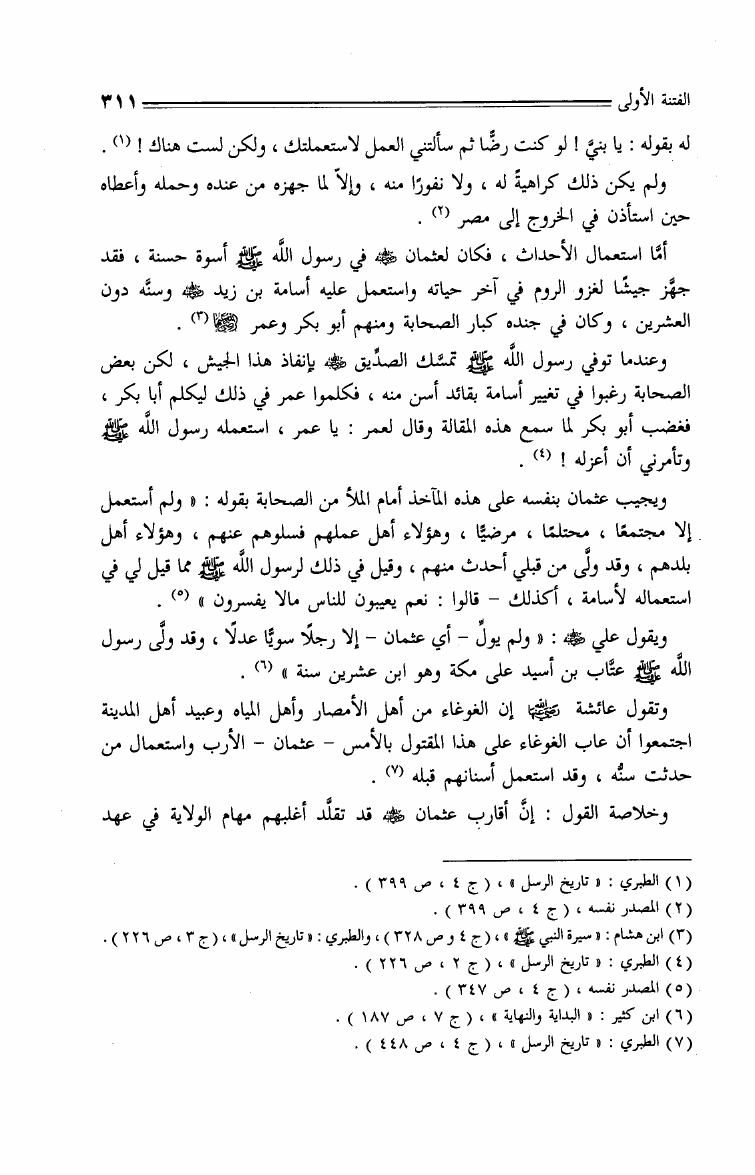 الفتنة الأولى ٣١١
له بقوله : يا بنيَّ ! لو كنت رضًّا ثم سألتني العمل لاستعملتك ، ولكن لست هناك ! (١) .
ولم يكن ذلك كراهيةً له ، ولا نفورًا منه ، وإلاّ لما جهزه من عنده وحمله وأعطاه
حين استأذن في الخروج إلى مصر (٢) .
أمَّا استعمال الأحداث ، فكان لعثمان رضي الله عنه في رسول اللَّه ﷺ أسوة حسنة ، فقد
جهَّز جيشًا لغزو الروم في آخر حياته واستعمل عليه أسامة بن زيد رضي الله عنه وسنَّه دون
العشرين ، وكان في جنده كبار الصحابة ومنهم أبو بكر وعمر رضي الله عنهما (٣) .
وعندما توفي رسول اللَّه ﷺ تمسَّك الصدِّيق رضي الله عنه بإنفاذ هذا الجيش ، لكن بعض
الصحابة رغبوا في تغيير أسامة بقائد أسن منه ، فكلموا عمر في ذلك ليكلم أبا بكر ،
فغضب أبو بكر لما سمع هذه المقالة وقال لعمر : يا عمر ، استعمله رسول اللَّه ﷺ
وتأمرني أن أعزله ! (٤) .
ويجيب عثمان بنفسه على هذه المآخذ أمام الملأ من الصحابة بقوله : « ولم أستعمل
إلا مجتمعًا ، محتلمًا ، مرضيًّا ، وهؤلاء أهل عملهم فسلوهم عنهم ، وهؤلاء أهل
بلدهم ، وقد ولَّى من قبلي أحدث منهم ، وقيل في ذلك لرسول اللَّه ﷺ مما قيل لي في
استعماله لأسامة ، أكذلك – قالوا : نعم يعيبون للناس مالا يفسرون » (٥) .
ويقول علي رضي الله عنه : « ولم يولِّ – أي عثمان – إلا رجلًا سويًّا عدلًا ، وقد ولَّى رسول
اللَّه ﷺ عتَّاب بن أسيد على مكة وهو ابن عشرين سنة » (٦) .
وتقول عائشة رضي الله عنها إن الغوغاء من أهل الأمصار وأهل المياه وعبيد أهل المدينة
اجتمعوا أن عاب الغوغاء على هذا المقتول بالأمس – عثمان – الأرب واستعمال من
حدثت سنُّه ، وقد استعمل أسنانهم قبله (٧) .
وخلاصة القول : إنَّ أقارب عثمان رضي الله عنه قد تقلَّد أغلبهم مهام الولاية في عهد
(١) الطبري : « تاريخ الرسل » ، ( ج ٤ ، ص ٣٩٩ ) .
(٢) المصدر نفسه ، ( ج ٤ ، ص ٣٩٩ ) .
(٣) ابن هشام : « سيرة النبي ﷺ » ، ( ج ٤ و ص ٣٢٨ ) ، والطبري : « تاريخ الرسل » ، ( ج ٣ ، ص ٢٢٦ ) .
(٤) الطبري : « تاريخ الرسل » ، ( ج ٢ ، ص ٢٢٦ ) .
(٥) المصدر نفسه ، ( ج ٤ ، ص ٣٤٧ ) .
(٦) ابن كثير : « البداية والنهاية » ، ( ج ٧ ، ص ١٨٧ ) .
(٧) الطبري : « تاريخ الرسل » ، ( ج ٤ ، ص ٤٤٨ ) .